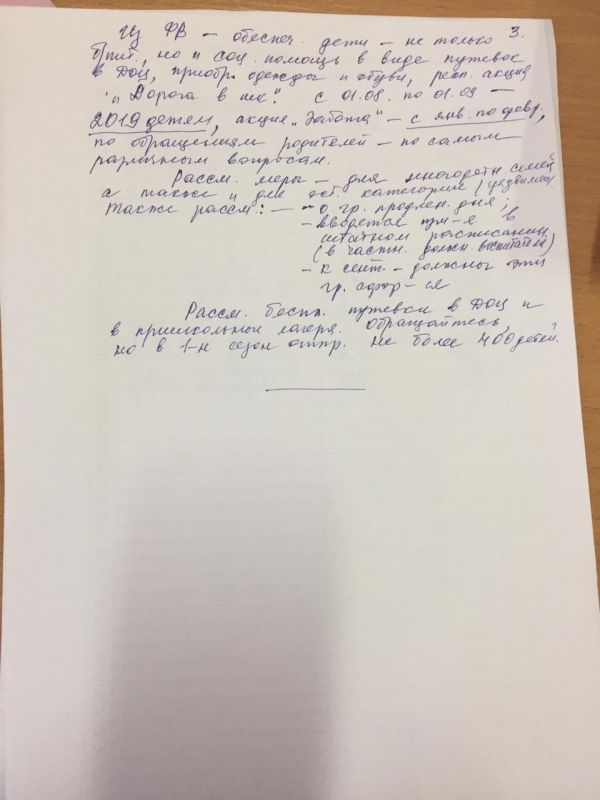 3.
Из ФВ – обеспеч. дети – не только
, но и соц. помощь в виде путевок
в ДОЦ, приобр. одежды и обуви, реал. акция
"и Дорога в шк." с 01.08. по 01.09. –
2019 детям, акция „Забота" – с янв. по февр.,
по обращениям родителей – по самым
различным вопросам.
Рассм. меры – для многодетн. семей
а также и для ост. категории (уязвим.
Также рассм.: – – о гр. продлен. дня;
– вводятся изм-я в
штатном расписании
(в частн. должн. воспитателя)
– к сент. – должны эти
гр. сфор-ся
Рассм. беспл. путевки в ДОЦ и
в пришкольные лагеря. Обращайтесь,
но в 1-н сезон отпр. не более 400 детей.